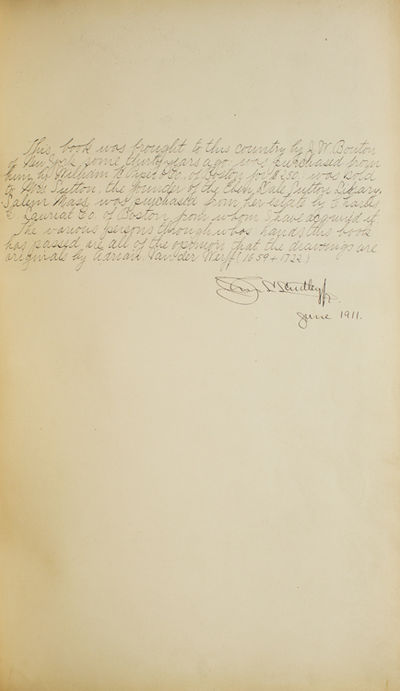 This book was brought to this country by J. W. Bouton
of New York some thirty years ago, was purchased from
him by William & Co. of Boston for $250, was sold
to Mrs Sutton, the founder of the Eben Dale Sutton Library,
Salem Mass, was purchased from her estate by Charles
E Lauriat Co. of Boston, from whom I have acquired it.
The various persons through whose hands this book
has passed are all of the opinion that the drawings are
originals by Adrian Van der Werff (1659 + 1722)
June 1911.